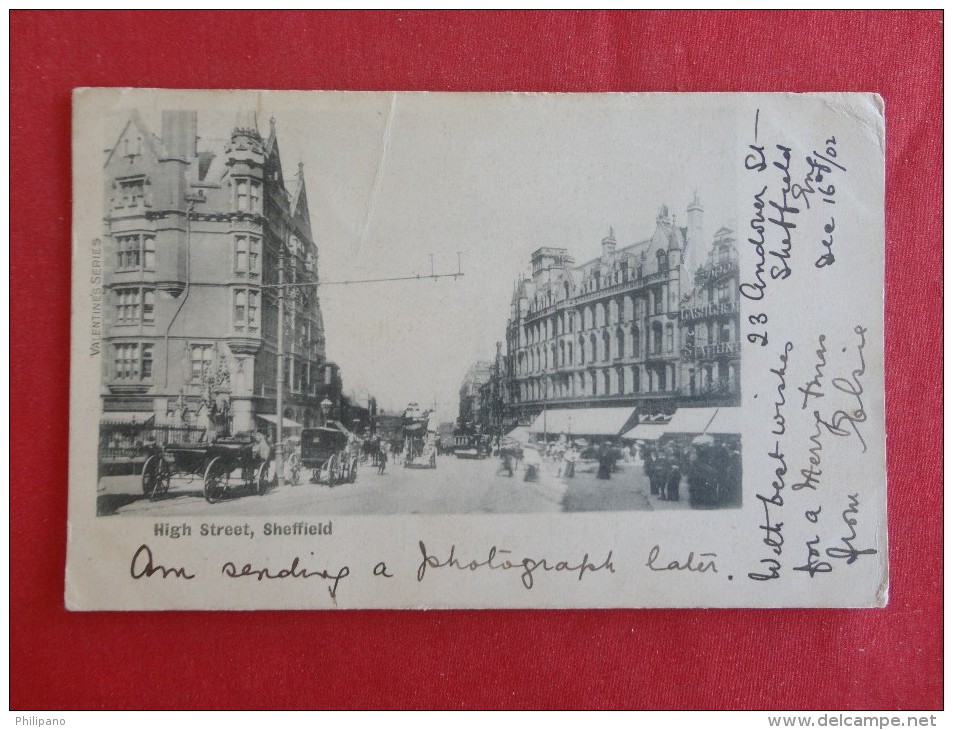 VALENTINE'S SERIES
High Street, Sheffield
Am sending a photograph later.
23 Andover St
Sheffield
Eng
Dec 16th/02
With best wishes
for a Merry Xmas
from Elsie
Philipano
www.delcampe.net